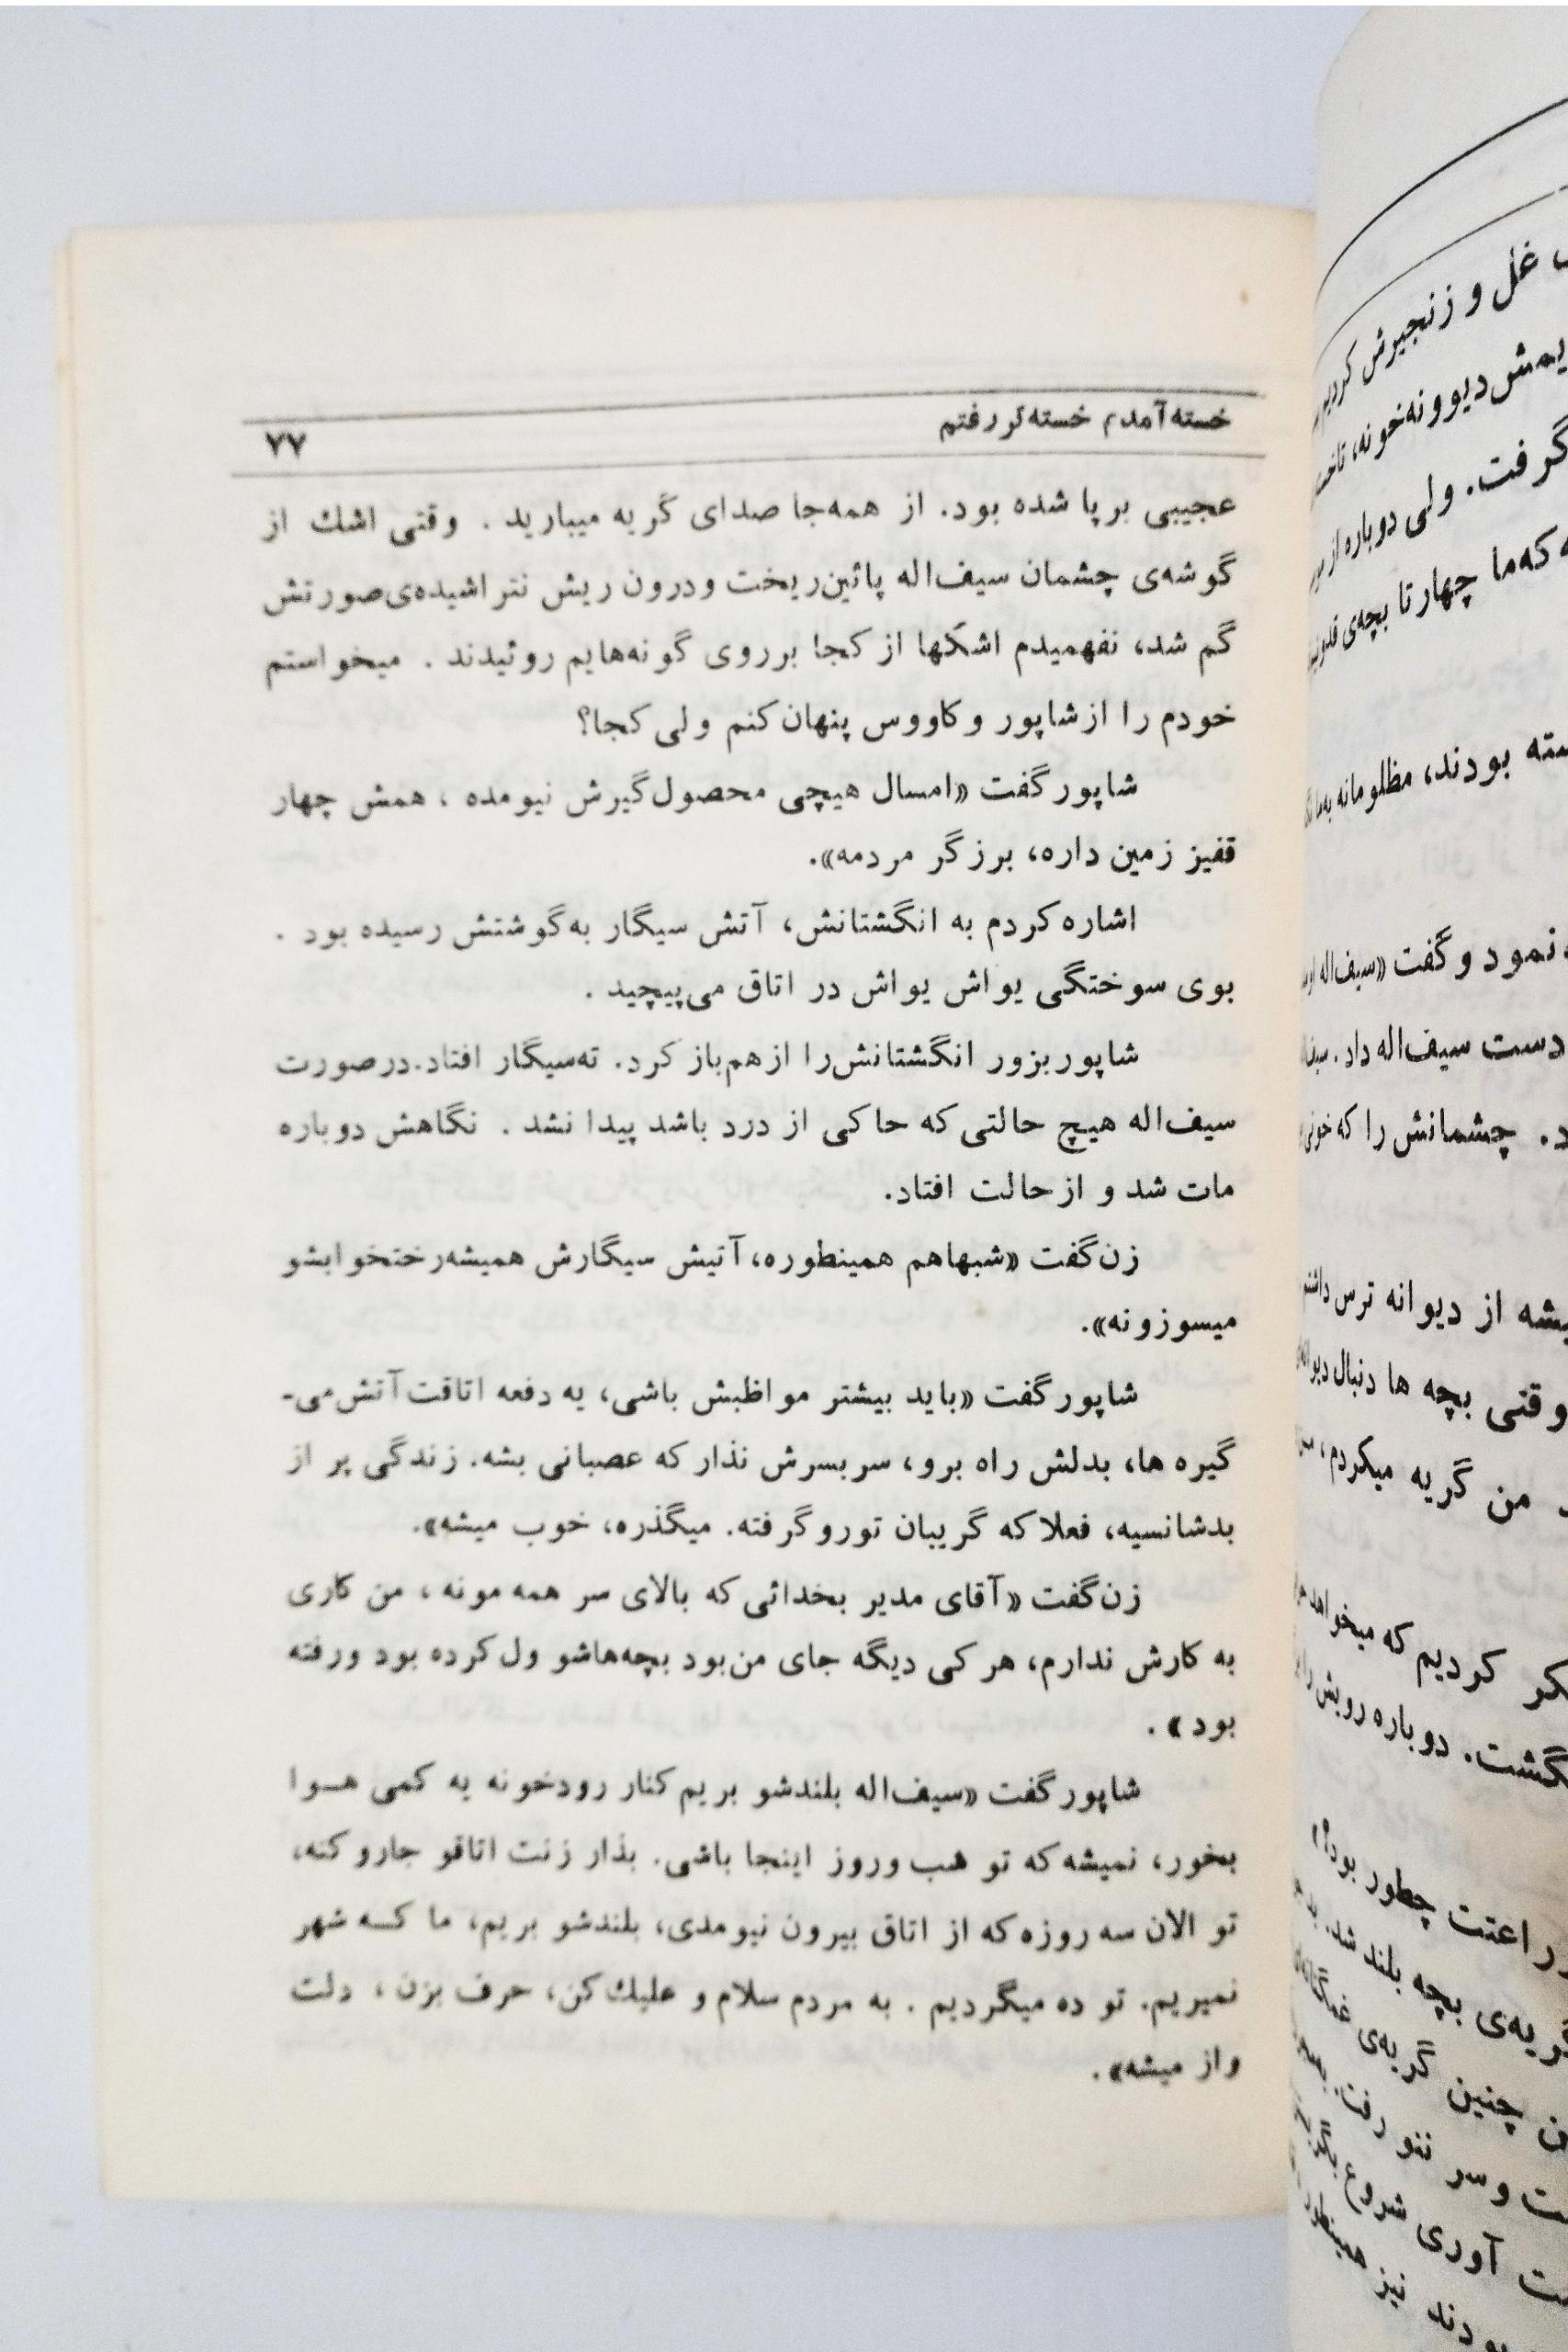 خسته‌آمدم خسته‌تر رفتم
۷۷
عجیبی برپا شده بود. از همه‌جا صدای گریه میبارید . وقتی اشك از
گوشه‌ی چشمان سیف‌اله پائین‌ریخت ودرون ریش نتراشیده‌ی‌صورتش
گم شد، نفهمیدم اشکها از کجا برروی گونه‌هایم روئیدند . میخواستم
خودم را ازشاپور وکاووس پنهان‌کنم ولی‌کجا؟
شاپورگفت «امسال هیچی محصول‌گیرش نیومده ، همش چهار
قفیز زمین داره، برزگر مردمه».
اشاره‌کردم به انگشتانش، آتش سیگار به‌گوشتش رسیده بود .
بوی سوختگی یواش یواش در اتاق می‌پیچید .
شاپوربزور انگشتانش‌را ازهم‌باز کرد. ته‌سیگار افتاد.درصورت
سیف‌اله هیچ حالتی که حاکی از درد باشد پیدا نشد . نگاهش دوباره
مات شد و ازحالت افتاد.
زن‌گفت «شبهاهم همینطوره، آتیش سیگارش همیشه‌رختخوابشو
میسوزونه».
شاپورگفت «باید بیشتر مواظبش باشی، یه دفعه اتاقت آتش‌می-
گیره ها، بدلش راه برو، سربسرش نذار که عصبانی بشه. زندگی پر از
بدشانسیه، فعلاکه گریبان توروگرفته. میگذره، خوب میشه».
زن‌گفت «آقای مدیر بخدائی که بالای سر همه مونه ، من کاری
به کارش ندارم، هرکی دیگه جای من‌بود بچه‌هاشو ول‌کرده بود ورفته
بود» .
شاپورگفت «سیف‌اله بلندشو بریم‌کنار رودخونه یه کمی هـوا
بخور، نمیشه‌که تو شب وروز اینجا باشی. بذار زنت اتاقو جاروکنه،
تو الان سه روزه‌که از اتاق بیرون نیومدی، بلندشو بریم، ما کـه شهر
نمیریم. تو ده میگردیم . به مردم سلام و علیك‌کن، حرف بزن ، دلت
واز میشه» .
غل و زنجیرش کردیم
یمش‌دیوونه‌خونه،
گرفت. ولی دوباره از
که‌ما چهارتا بچه‌ی
بودند، مظلومانه
نمود وگفت «سیف‌اله
دست سیف‌اله داد .
چشمانش را که خونی
از دیوانه ترس داشتم
وقتی بچه ها دنبال
من گریه میکردم،
کردیم که میخواهد
دوباره رویش را
چطور بود؟»
بچه بلند شد.
چنین گریه‌ی
وسر ننو رفت.
آوری شروع
نیز